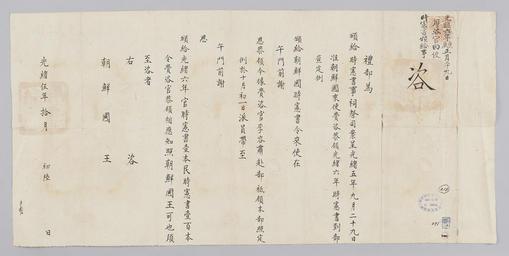 光緒六年庚辰正月十九日
時憲書頒給事
咨
禮部為
頒給時憲書事祠祭司案呈光緒五年九月二十九日
准朝鮮國來使賫咨恭領光緒六年時憲書到部
查定例
頒給朝鮮國時憲書令來使在
午門前謝
恩恭領今據賫咨官李容肅赴部祗領本部照定
例於十月初一日派員帶至
午門前謝
恩
頒給光緒六年官時憲書壹本民時憲書壹百本
令賫咨官恭領相應知照朝鮮國王可也須
至咨者
右咨
朝鮮國王
光緒伍年拾月初陸日